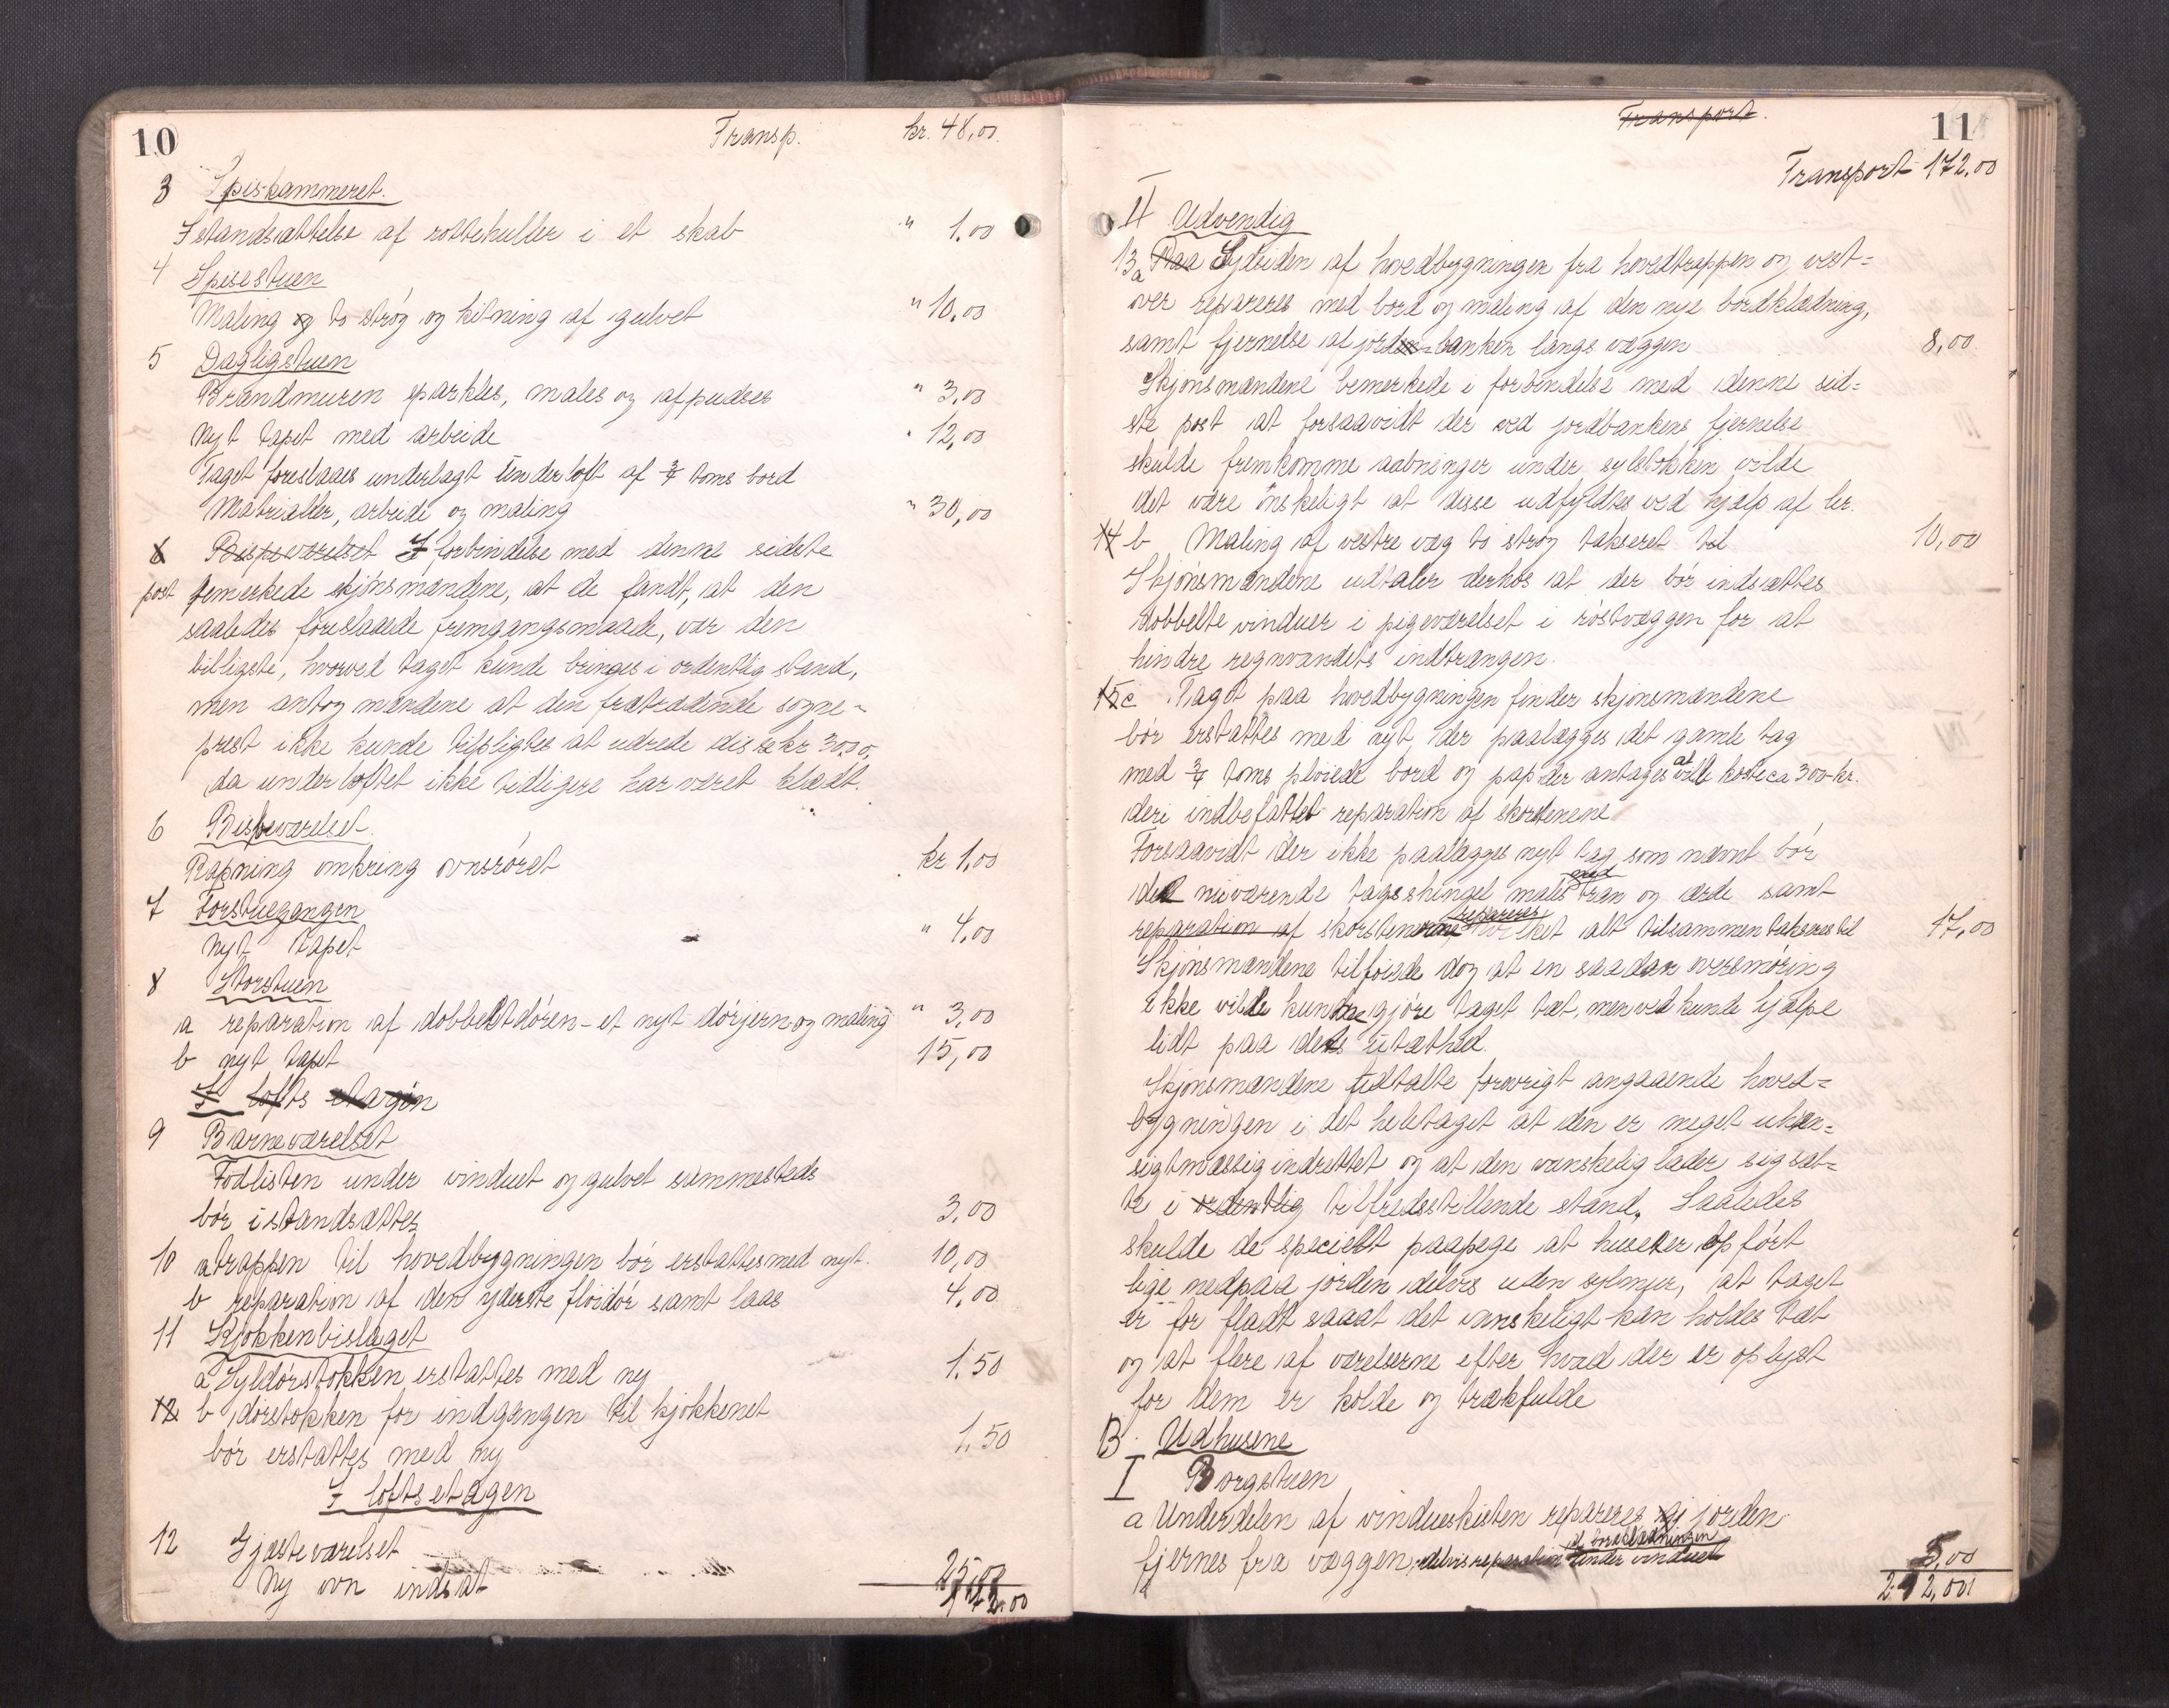 10 Transp. kr. 48,00
3 Spiskammeret.
Istandsættelse af rottehuller i et skab " 1.00
4 Spisestuen
Maling og to strøg og kitning af gulvet " 10,00
5 Dagligstuen
Brandmuren sparkles, males og afpudses " 3,00
Nyt tapet med arbeide " 12,00
Taget foreslaaes underlagt underloft af 3/4 toms bord
Matrialler, arbeide og maling " 30,00
6 Bispeværelset I forbindelse med denne sidste
post bemerkede skjønsmændene, at de fandt, at den
saaledes foreslaaede fremgangsmaade, var den
billigste, hvorved taget kunde bringes i ordentlig stand,
men antog mændene at den fratrædende sogne-
prest ikke kunde tilpligtes at udrede disse kr 30,00,
da underloftet ikke tidligere har været klædt.
6 Bispeværelset.
Rapning omkring ovnsrøret kr 1,00
7 Forstuegangen
Nyt tapet " 4,00
8 Storstuen
a reparation af dobbeltdøren - et nyt dørjern og maling " 3,00
b nyt tapet 15,00
I lofts etagen
9 Barneværelset
Fodlisten under vinduet og gulvet sammesteds
bør istandsættes 3,00
10 a trappen til hovedbygningen bør erstattes med nyt. 10,00
b reparation af den yderste fløidør samt laas 4,00
11 Kjøkkenbislaget
a Syldørstokken erstattes med ny 1.50
12 b dørstokken for indgangen til kjøkkenet
bør erstattes med ny 1,50
I loftsetagen
12 Gjæsteværelset
Ny ovn indsat 25,00
172.00
Transport.
11
Transport 172.00
II Udvendig
13 a Paa Sydsiden af hovedbygningen fra hovedtrappen og vest=
over repareres med bord og maling af den nye bordklædning,
samt fjernelse af jordbanken langs væggen 8,00
Skjønsmændene bemerkede i forbindelse med denne sid=
ste post at forsaavidt der ved jordbankens fjernelse
skulde fremkomme aabninger under sylstokken vilde
det være ønskeligt at disse udfyldtes ved hjælp af ler.
14 b Maling af vestre væg to strøg takseret til 10,00
Skjønsmændene udtaler derhos at der bør indsættes
dobbelte vinduer i pigeværelset i røstvæggen for at
hindre regnvandets indtrængen.
15 c Taget paa hovedbygningen finder skjønsmændene
bør erstattes med nyt, der paalægges det gamle tag
med 3/4 toms pløiede bord og pap der antages at ville koste ca 300 kr.
deri indbefattet reparation af skorstenene
Forsaavidt der ikke paalægges nyt tag som nævnt bør
det nuværende tagsshingel males med tran og ærde samt
reparation af skorstenene repareres hvilket alt tilsammen takseres til 17,00
Skjønsmændene tilføiede dog at en saadan oversmøring
ikke vilde kunne gjøre taget tæt, men vel kunde hjælpe
lidt paa dets utæthed.
Skjønsmændene udtalte forøvrigt angaaende hoved=
bygningen i det heletaget at den er meget uhen=
sigtmæssig indrettet og at den vanskelig lader sig sæt=
te i ordentlig tilfredsstillende stand. Saaledes
skulde de specielt paapege at huset er opført
lige ned paa jorden delvis uden sylmur, at taget
er for fladt saaat det vanskeligt kan holdes tæt
og at flere af værelserne efter hvad der er oplyst
for dem er kolde og trækfulde
B. Udhusene
I Borgstuen
a Underdelen af vindueskisten repareres og jorden
fjernes fra væggen, delvis reparation af bordklædningen under vinduet 5,00
212,00